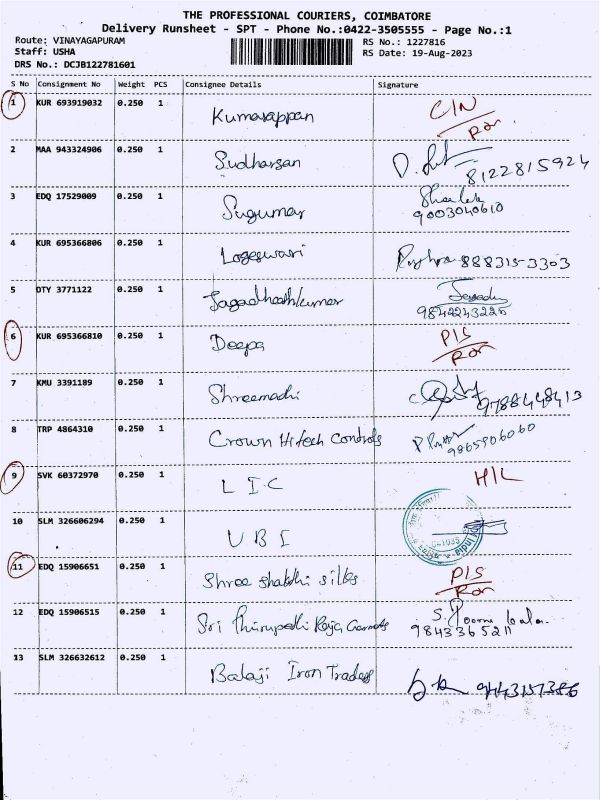 THE PROFESSIONAL COURIERS, COIMBATORE
Delivery Runsheet - SPT - Phone No.:0422-3505555 - Page No.:1
Route: VINAYAGAPURAM RS No.: 1227816
Staff: USHA RS Date: 19-Aug-2023
DRS No.: DCJB122781601
S No Consignment No Weight PCS Consignee Details Signature
1 KUR 693919032 0.250 1 Kumarappan CIN
Ror
2 MAA 943324906 0.250 1 Sudharsan
8122815924
3 EDQ 17529009 0.250 1 Sugumar
9003040610
4 KUR 695366806 0.250 1 Logeswari 888315-3303
5 OTY 3771122 0.250 1 Jagadheeshkumar
9842243225
6 KUR 695366810 0.250 1 Deepa PIS
Ror
7 KMU 3391189 0.250 1 Shreemadhi 9788448413
8 TRP 4864310 0.250 1 Crown Hitech Controls
9865906060
9 SVK 60372970 0.250 1 L I C H/L
10 SLM 326606294 0.250 1 U B I
11 EDQ 15906651 0.250 1 Shree Shakthi silks PIS
Ror
12 EDQ 15906515 0.250 1 Sri Thirupathi Raja Garments
9843365211
13 SLM 326632612 0.250 1 Balaji Iron Traders 9443157386